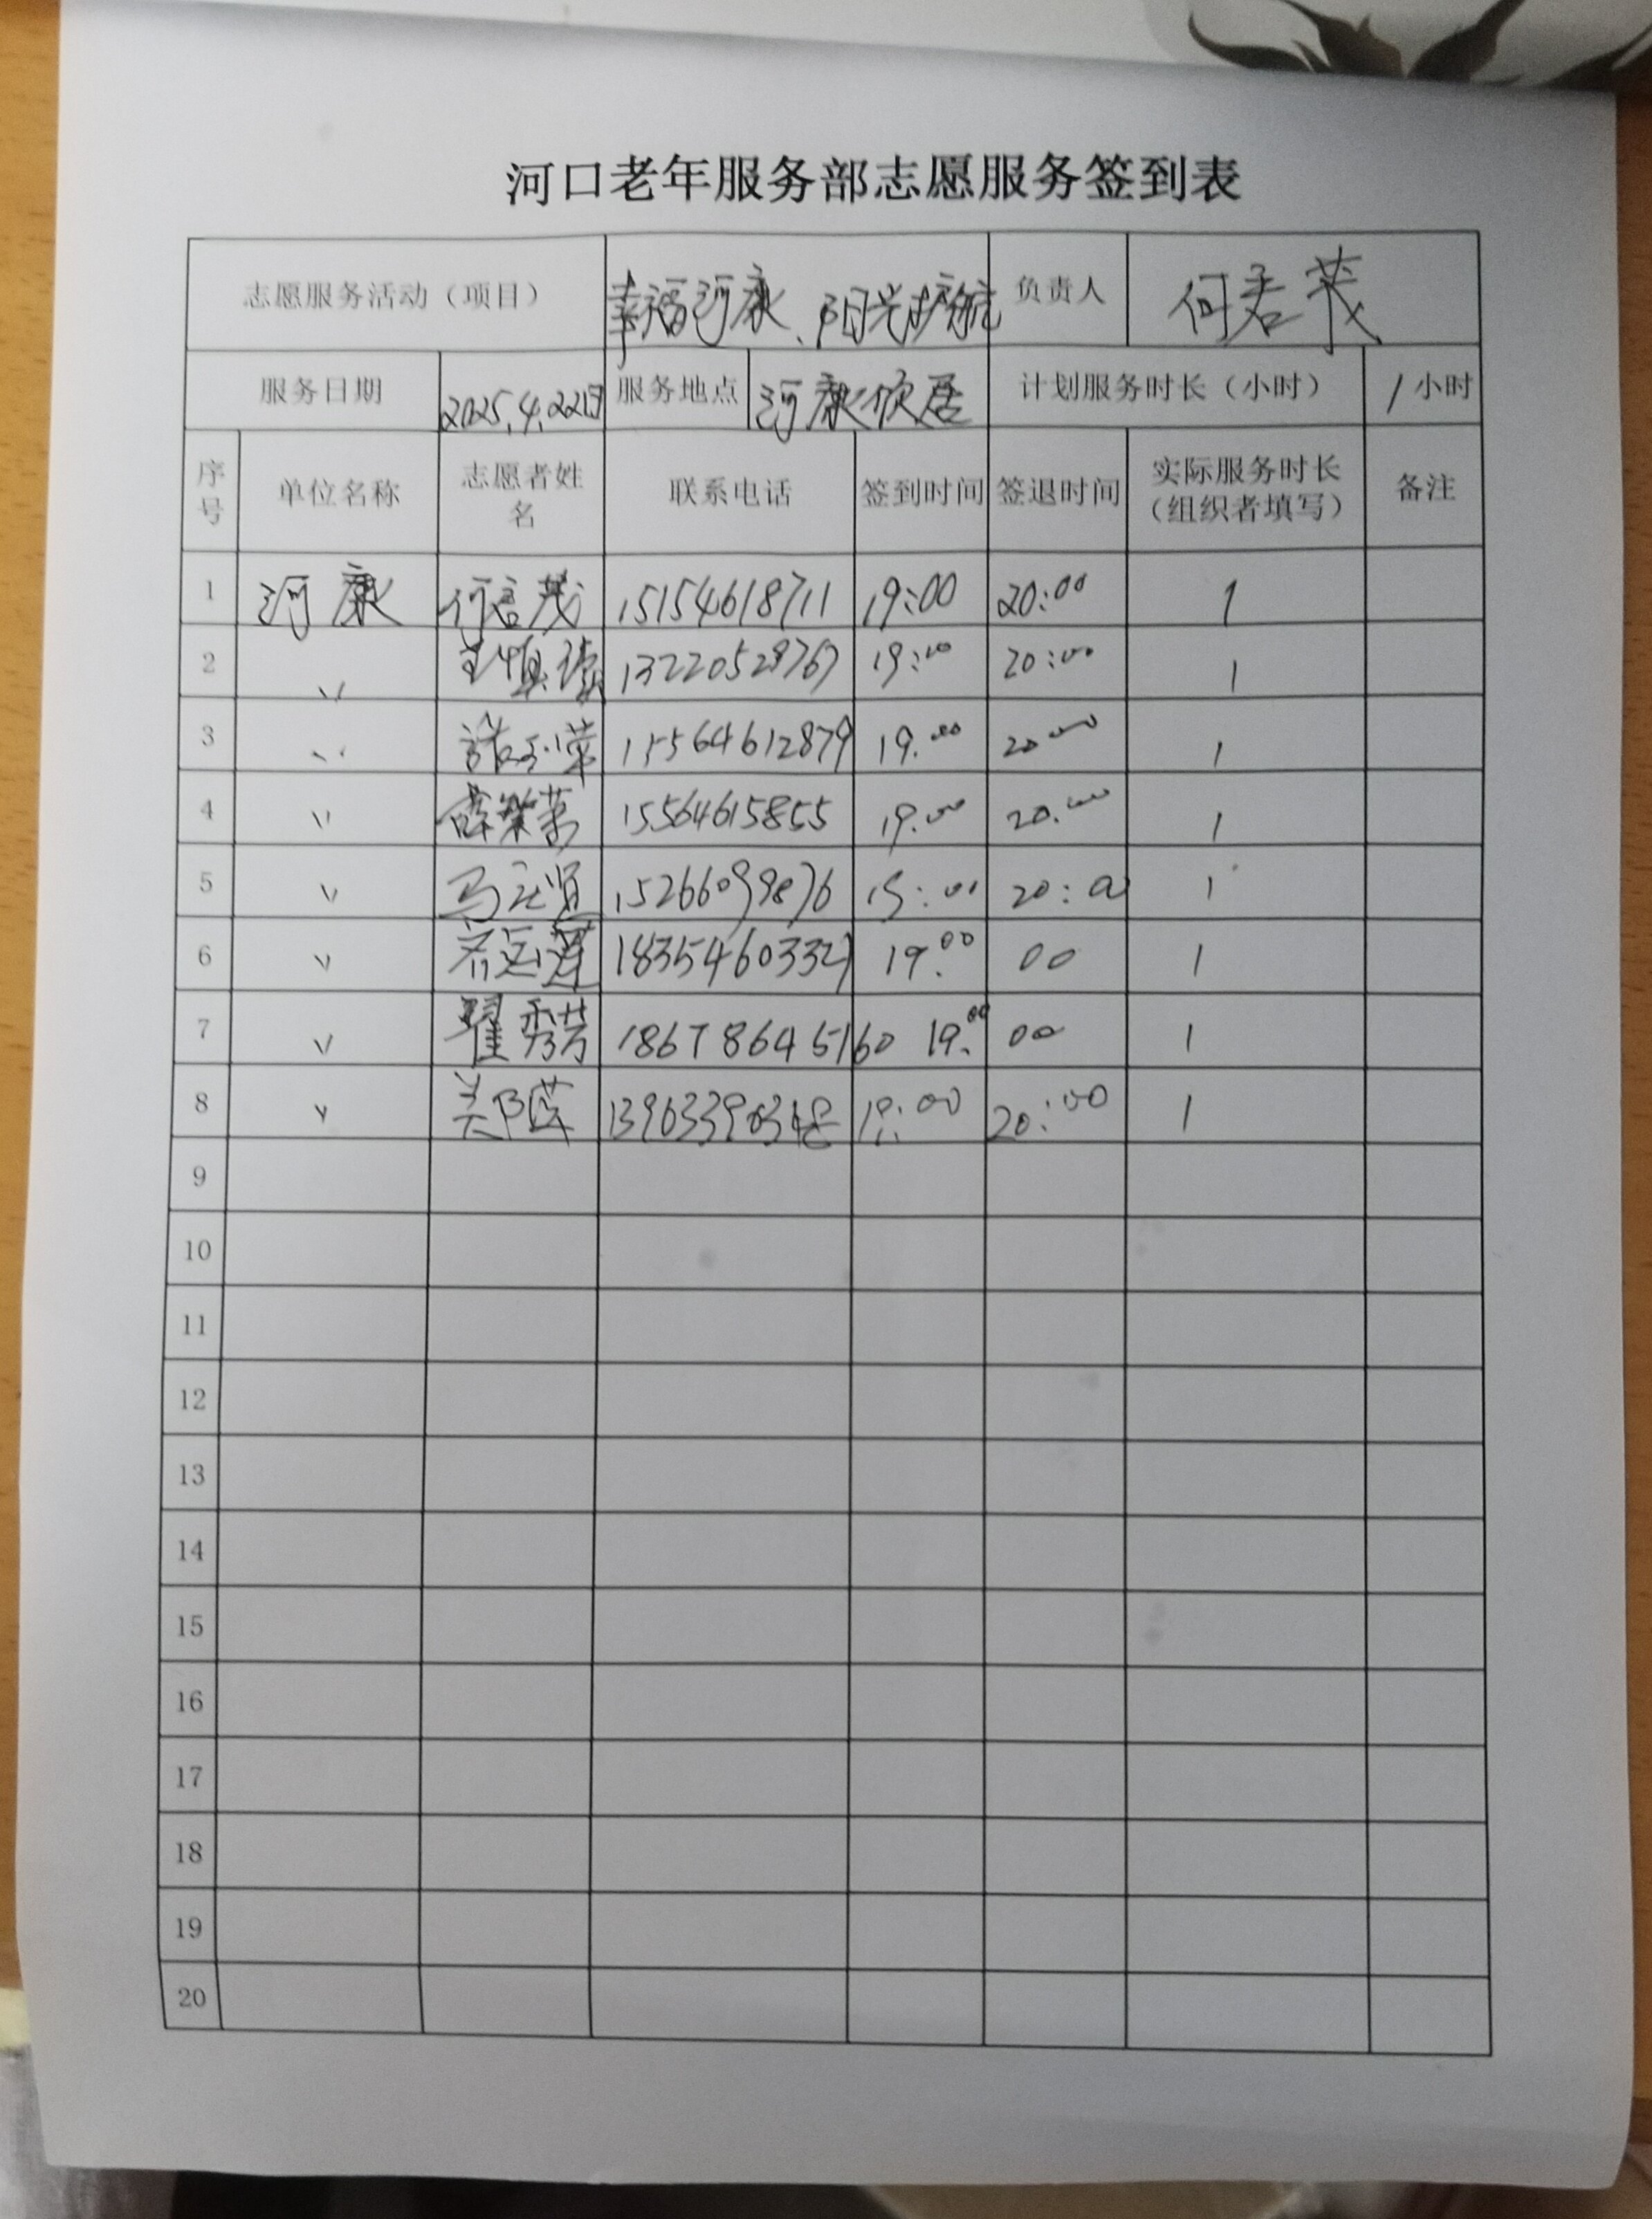 河口老年服务部志愿服务签到表
志愿服务活动（项目） 幸福河康、阳光护航 负责人 何君茂
服务日期 2025.4.22日 服务地点 河康欣居 计划服务时长（小时） 1小时
序号 单位名称 志愿者姓名 联系电话 签到时间 签退时间 实际服务时长（组织者填写） 备注
1 河康 15154618711 19:00 20:00 1
2 〃 13220529767 19:00 20:00 1
3 〃 15564612879 19:00 20:00 1
4 〃 15564615855 19:00 20:00 1
5 〃 15266099876 19:00 20:00 1
6 〃 19:00 00 1
7 〃 翟秀芳 18678645160 19:00 00 1
8 〃 19:00 20:00 1
9
10
11
12
13
14
15
16
17
18
19
20